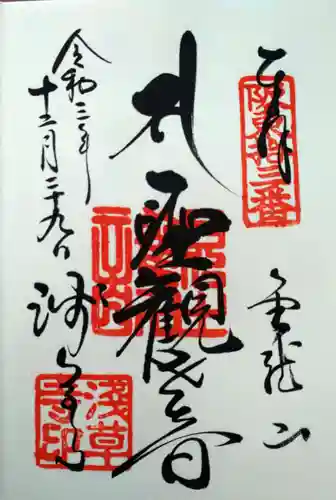 奉拝
坂東拾三番
金龍山
聖観音
令和三年
十二月二十九日
浅草寺
浅草寺印